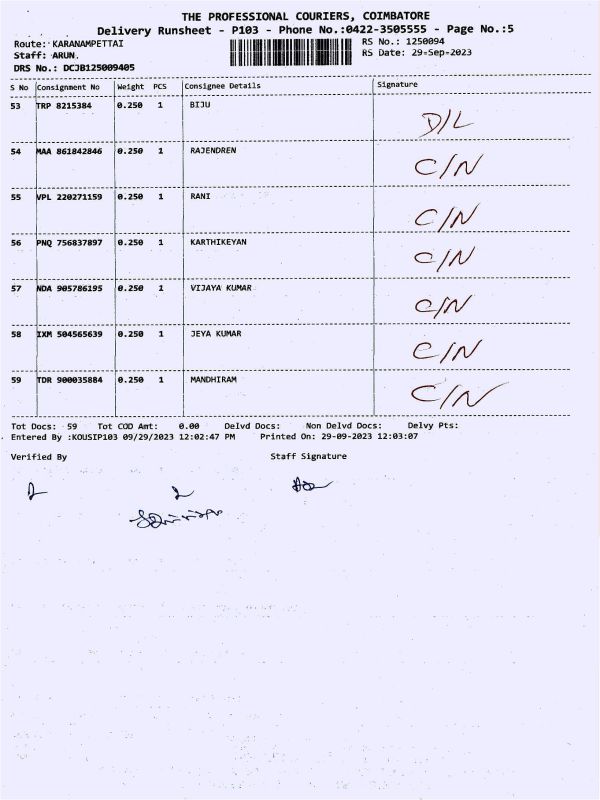 THE PROFESSIONAL COURIERS, COIMBATORE
Delivery Runsheet - P103 - Phone No.:0422-3505555 - Page No.:5
Route: KARANAMPETTAI RS No.: 1250094
Staff: ARUN. RS Date: 29-Sep-2023
DRS No.: DCJB125009405
S No Consignment No Weight PCS Consignee Details Signature
53 TRP 8215384 0.250 1 BIJU D/L
54 MAA 861842846 0.250 1 RAJENDREN C/N
55 VPL 220271159 0.250 1 RANI C/N
56 PNQ 756837897 0.250 1 KARTHIKEYAN C/N
57 NDA 905786195 0.250 1 VIJAYA KUMAR C/N
58 IXM 504565639 0.250 1 JEYA KUMAR C/N
59 TDR 900035884 0.250 1 MANDHIRAM C/N
Tot Docs: 59 Tot COD Amt: 0.00 Delvd Docs: Non Delvd Docs: Delvy Pts:
Entered By :KOUSIP103 09/29/2023 12:02:47 PM Printed On: 29-09-2023 12:03:07
Verified By Staff Signature